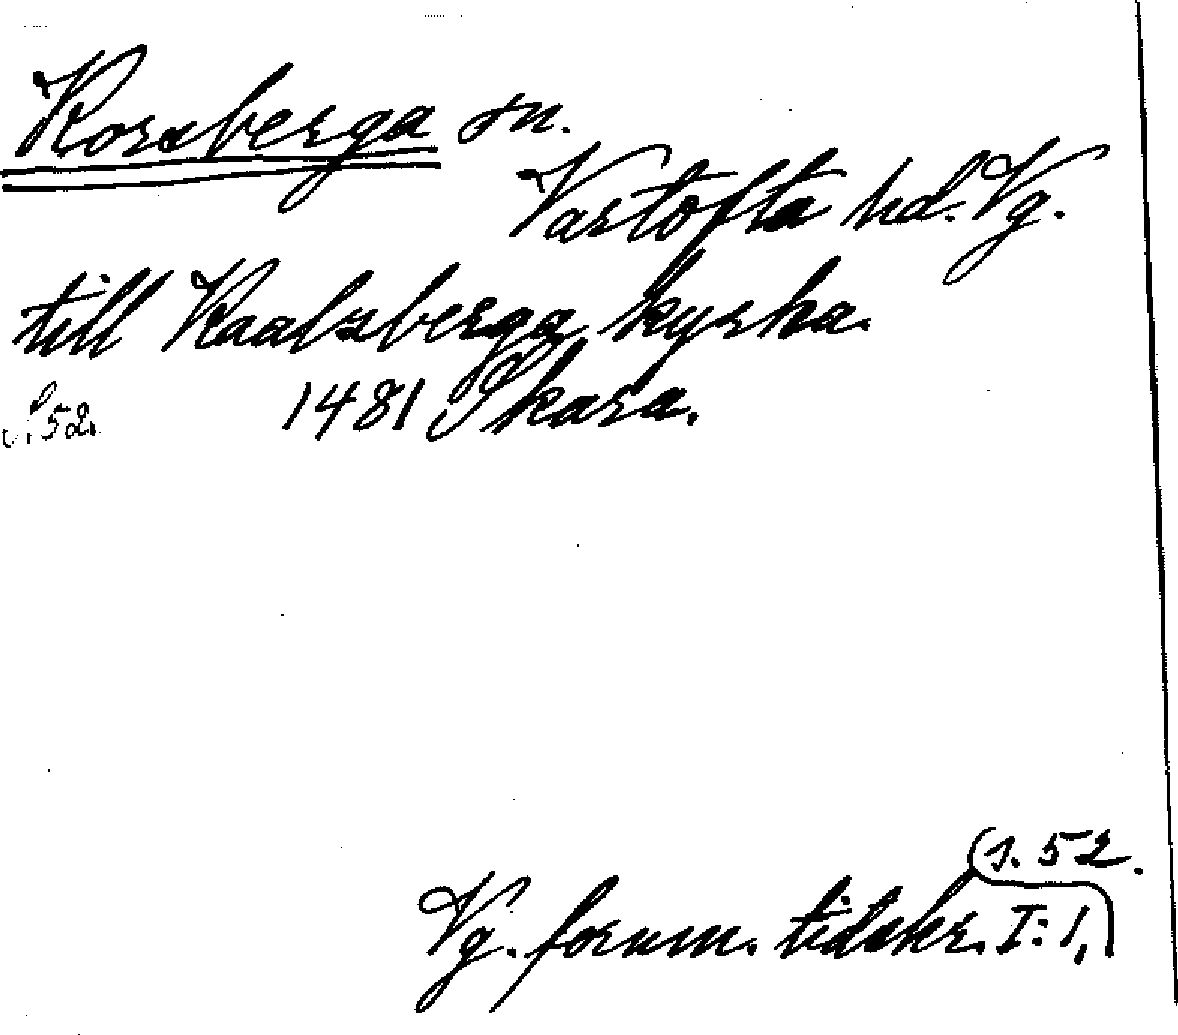 Korsberga sn.
Vartofta hd. Vg.
till Kaalzberga kyrka.
s. 52. 1481 Skara.
s. 52.
Vg. fornm. tidskr. I: 1,